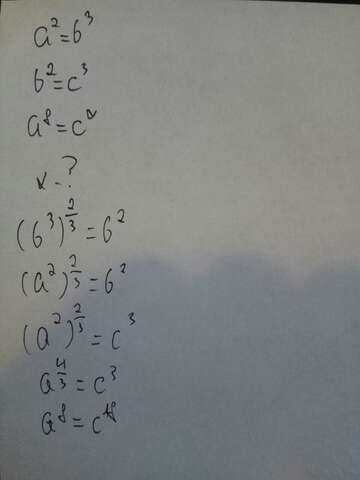 a² = b³
b² = c³
a⁸ = c^x
x - ?
(b³)^(2/3) = b²
(a²)^(2/3) = b²
(a²)^(2/3) = c³
a^(4/3) = c³
a⁸ = c¹⁸